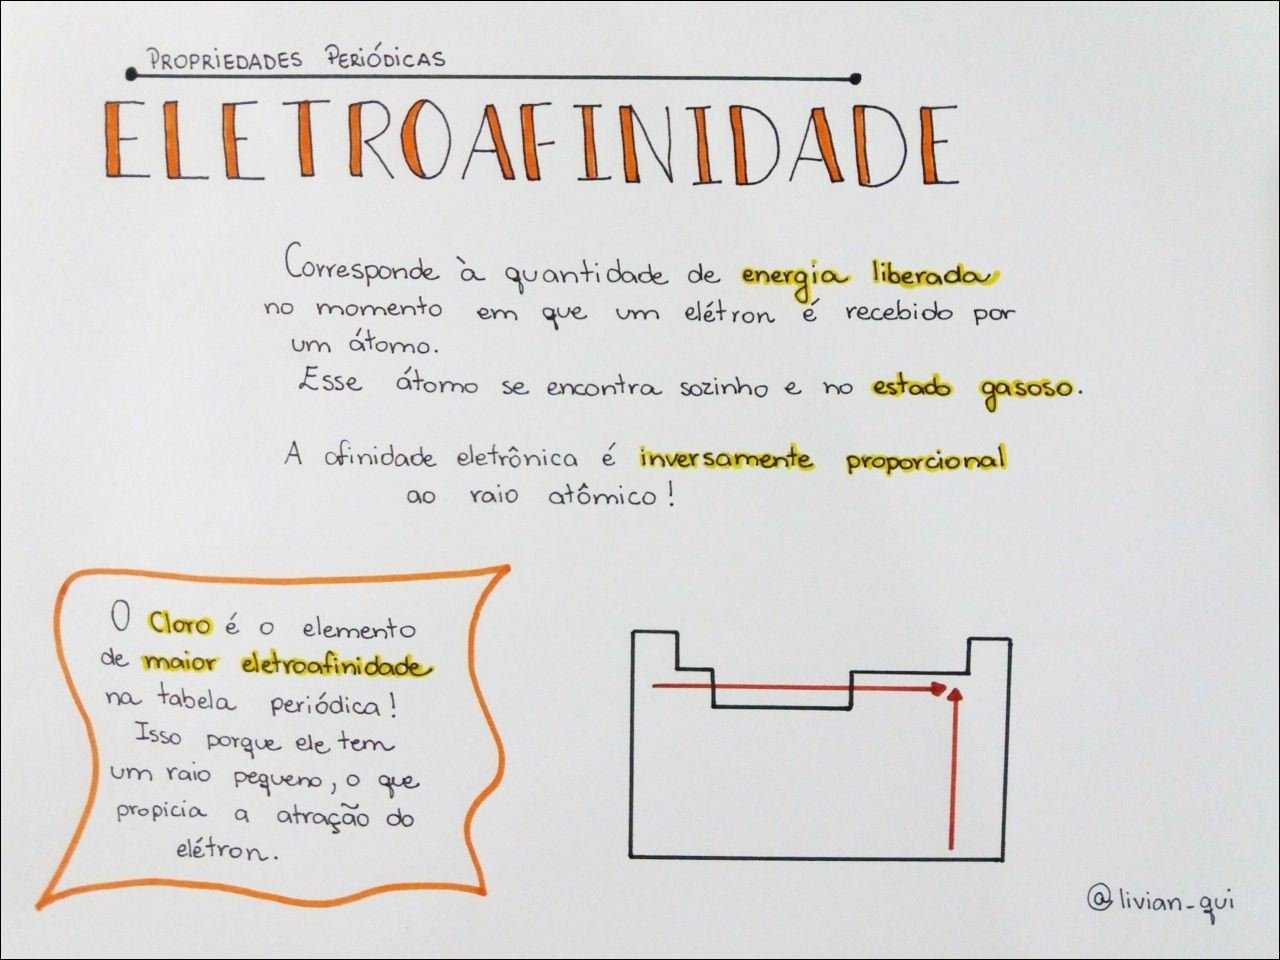 PROPRIEDADES PERIÓDICAS
ELETROAFINIDADE
Corresponde à quantidade de energia liberada
no momento em que um elétron é recebido por
um átomo.
Esse átomo se encontra sozinho e no estado gasoso.
A afinidade eletrônica é inversamente proporcional
ao raio atômico!
O Cloro é o elemento
de maior eletroafinidade
na tabela periódica!
Isso porque ele tem
um raio pequeno, o que
propicia a atração do
elétron.
@livian_qui